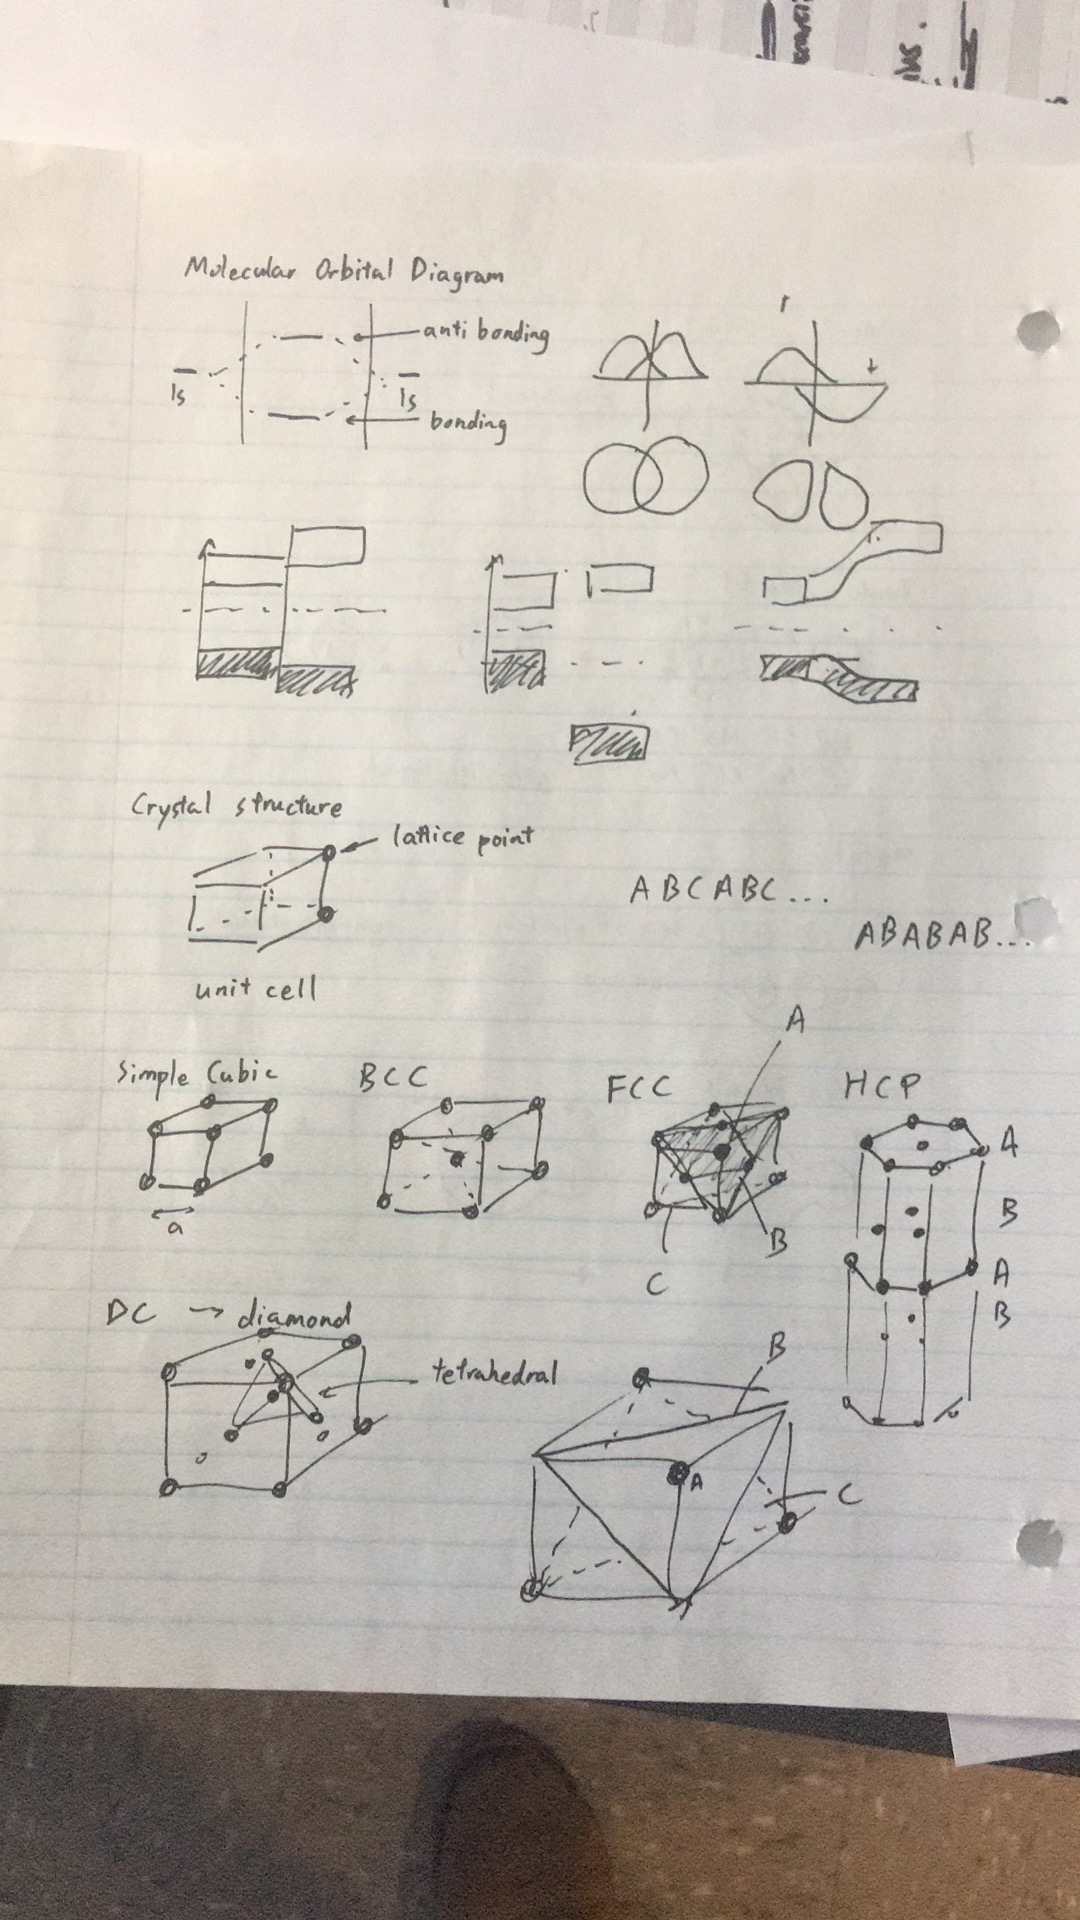 Molecular Orbital Diagram
anti bonding
1s
1s
bonding
Crystal structure
lattice point
ABCABC...
ABABAB...
unit cell
A
Simple Cubic
BCC
FCC
HCP
A
B
A
B
a
B
C
DC → diamond
tetrahedral
B
A
C